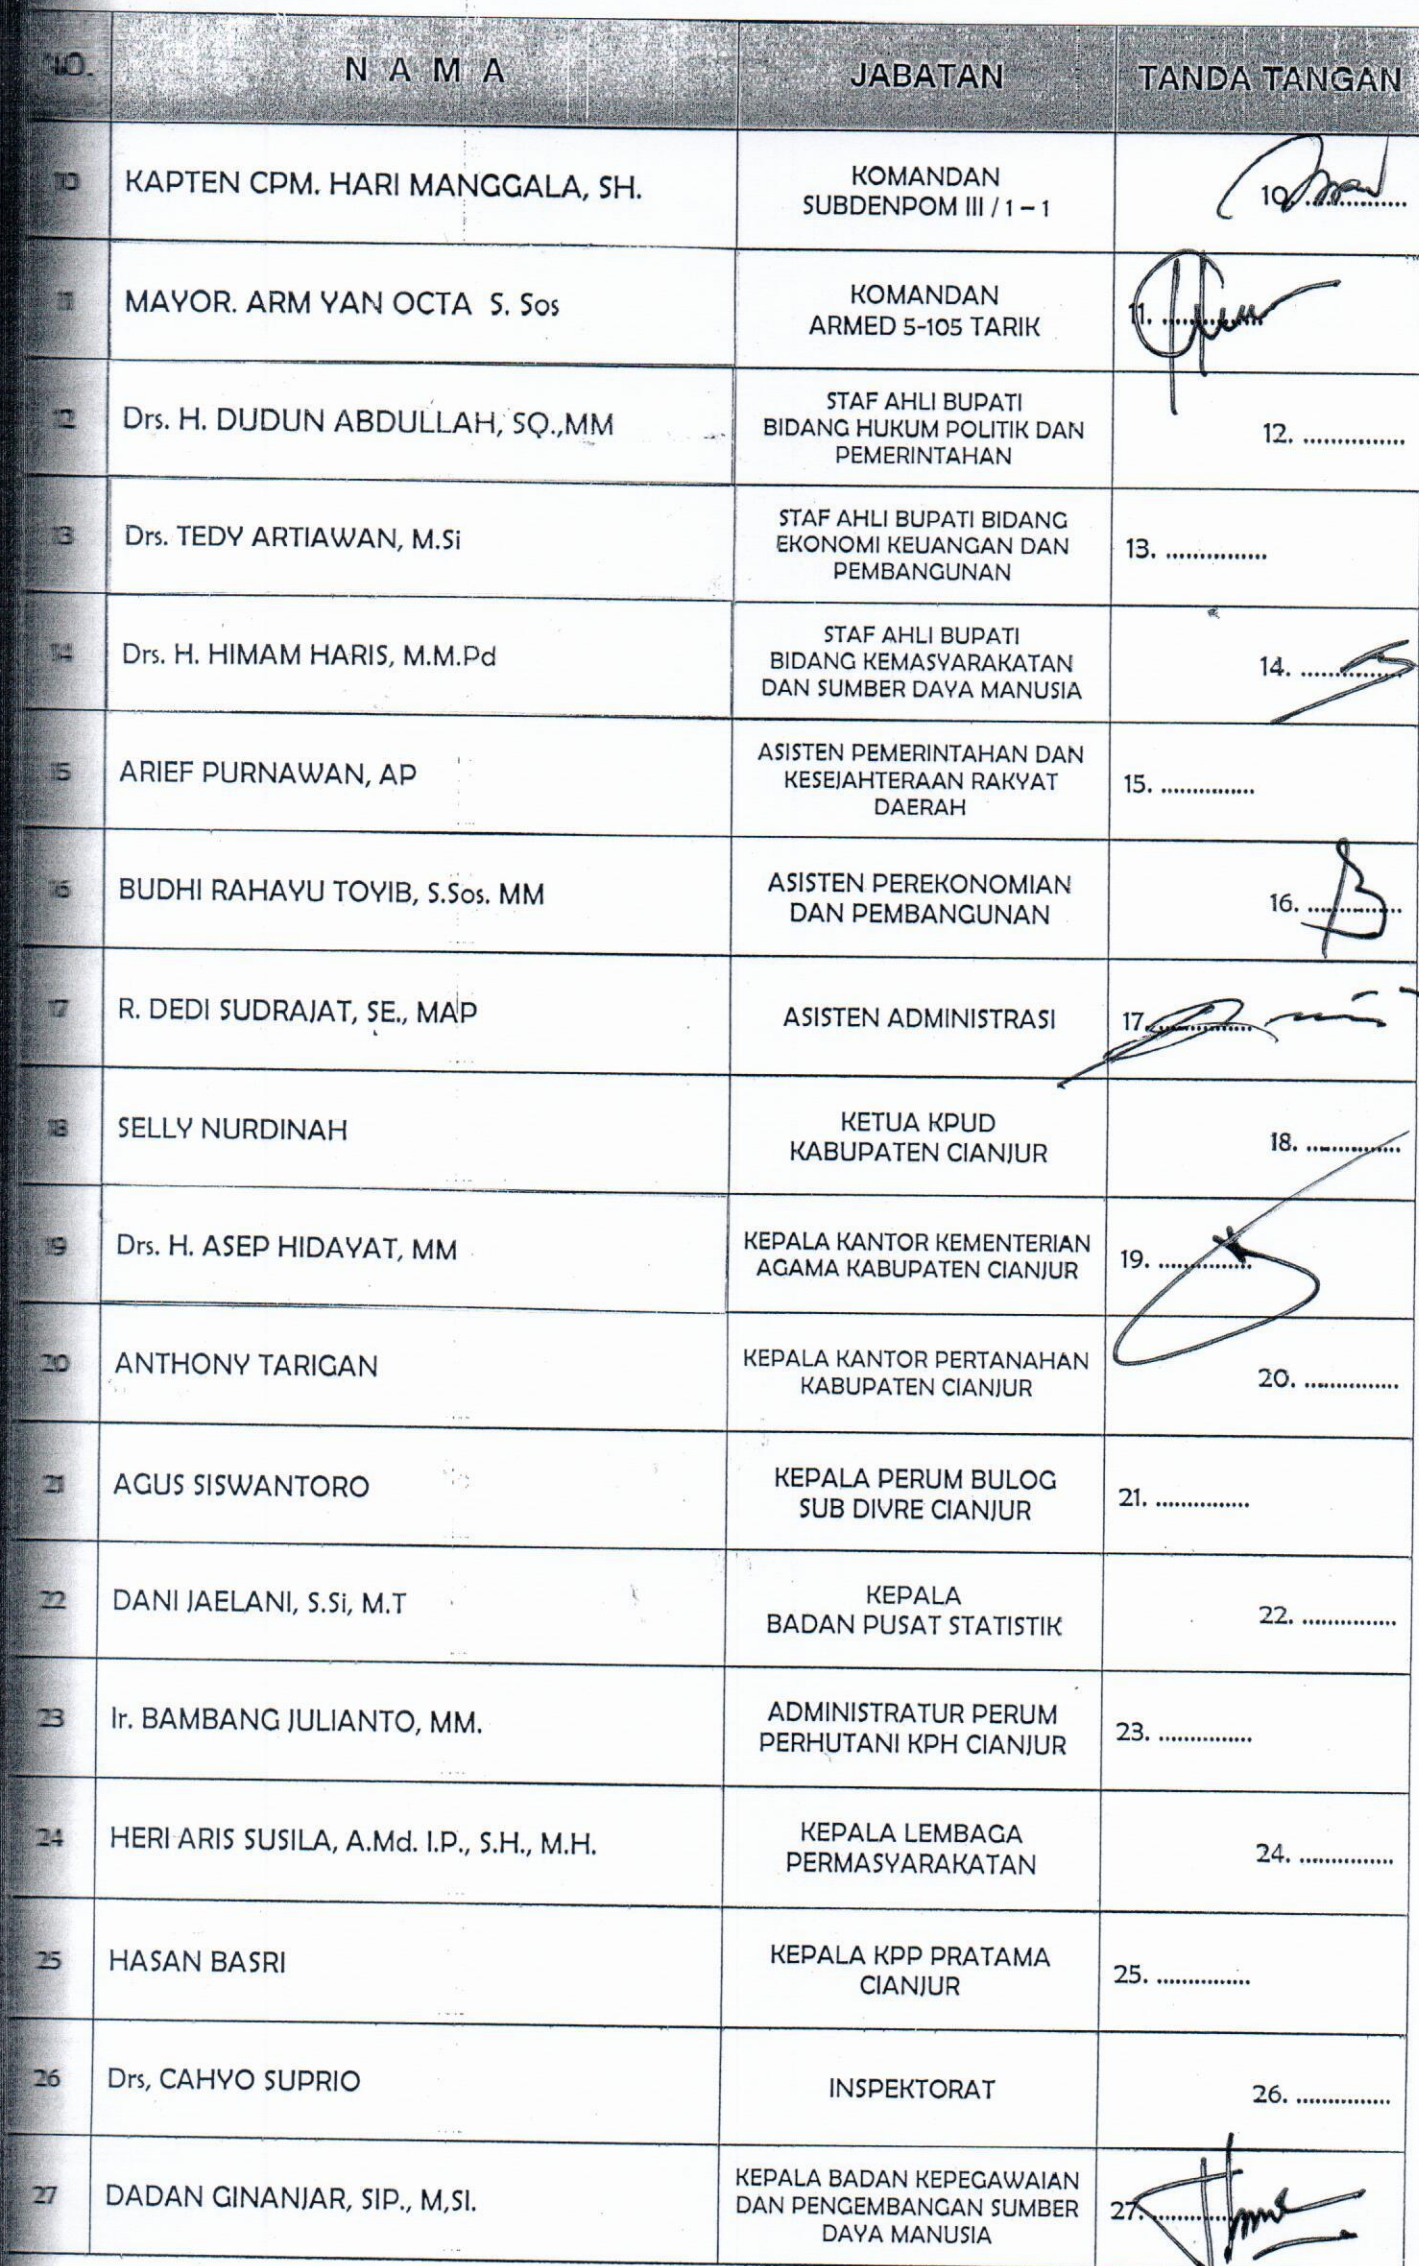 NO. N A M A JABATAN TANDA TANGAN
10 KAPTEN CPM. HARI MANGGALA, SH. KOMANDAN
SUBDENPOM III / 1 – 1 10. ...............
11 MAYOR. ARM YAN OCTA S. Sos KOMANDAN
ARMED 5-105 TARIK 11. ...............
12 Drs. H. DUDUN ABDULLAH, SQ.,MM STAF AHLI BUPATI
BIDANG HUKUM POLITIK DAN
PEMERINTAHAN 12. ...............
13 Drs. TEDY ARTIAWAN, M.Si STAF AHLI BUPATI BIDANG
EKONOMI KEUANGAN DAN
PEMBANGUNAN 13. ...............
14 Drs. H. HIMAM HARIS, M.M.Pd STAF AHLI BUPATI
BIDANG KEMASYARAKATAN
DAN SUMBER DAYA MANUSIA 14. ...............
15 ARIEF PURNAWAN, AP ASISTEN PEMERINTAHAN DAN
KESEJAHTERAAN RAKYAT
DAERAH 15. ...............
16 BUDHI RAHAYU TOYIB, S.Sos. MM ASISTEN PEREKONOMIAN
DAN PEMBANGUNAN 16. ...............
17 R. DEDI SUDRAJAT, SE., MAP ASISTEN ADMINISTRASI 17. ...............
18 SELLY NURDINAH KETUA KPUD
KABUPATEN CIANJUR 18. ...............
19 Drs. H. ASEP HIDAYAT, MM KEPALA KANTOR KEMENTERIAN
AGAMA KABUPATEN CIANJUR 19. ...............
20 ANTHONY TARIGAN KEPALA KANTOR PERTANAHAN
KABUPATEN CIANJUR 20. ...............
21 AGUS SISWANTORO KEPALA PERUM BULOG
SUB DIVRE CIANJUR 21. ...............
22 DANI JAELANI, S.Si, M.T KEPALA
BADAN PUSAT STATISTIK 22. ...............
23 Ir. BAMBANG JULIANTO, MM. ADMINISTRATUR PERUM
PERHUTANI KPH CIANJUR 23. ...............
24 HERI ARIS SUSILA, A.Md. I.P., S.H., M.H. KEPALA LEMBAGA
PERMASYARAKATAN 24. ...............
25 HASAN BASRI KEPALA KPP PRATAMA
CIANJUR 25. ...............
26 Drs, CAHYO SUPRIO INSPEKTORAT 26. ...............
27 DADAN GINANJAR, SIP., M,SI. KEPALA BADAN KEPEGAWAIAN
DAN PENGEMBANGAN SUMBER
DAYA MANUSIA 27. ...............